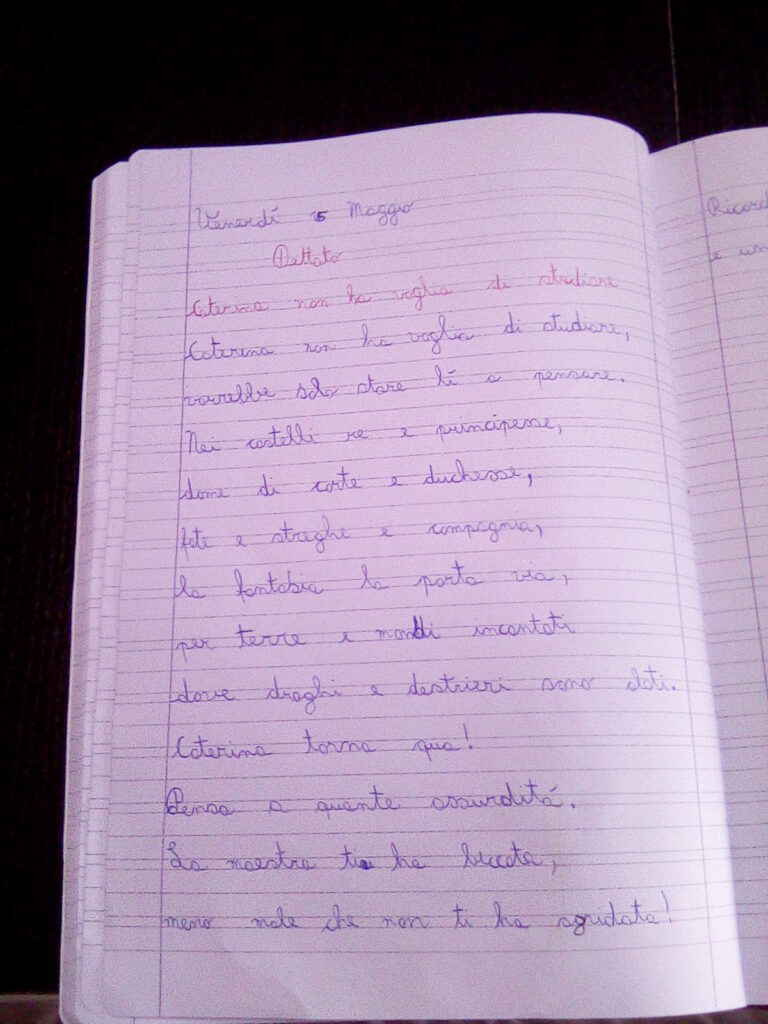 Venerdí 15 Maggio
Dettato
Caterina non ha voglia di studiare
Caterina non ha voglia di studiare,
vorrebbe solo stare lí a pensare.
Nei castelli re e principesse,
dame di corte e duchesse,
fate e streghe e compagnia,
la fantasia la porta via,
per terre e mondi incantati
dove draghi e destrieri sono
Caterina torna qua!
Pensa a quante assurditá.
La maestra ti ha beccata,
meno male che non ti ha sgridata!
Ricord
e un